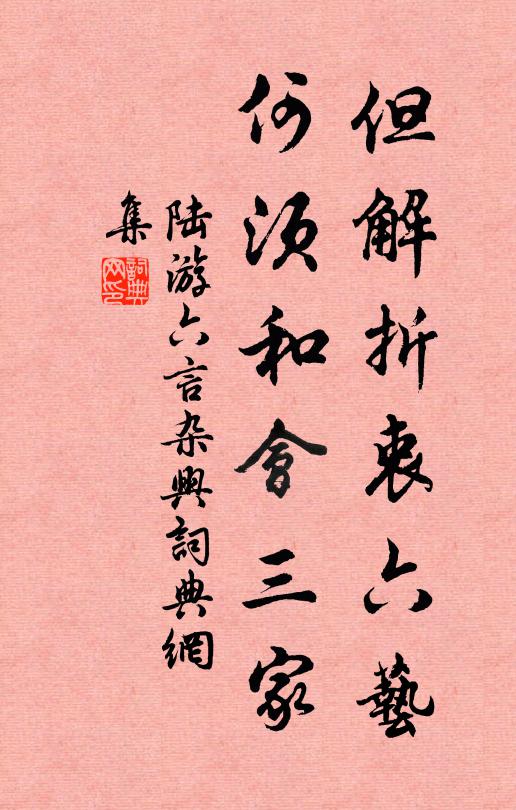 但解折衷六藝
何須和會三家
陆游六言杂興詞典網
集
詞典
网印